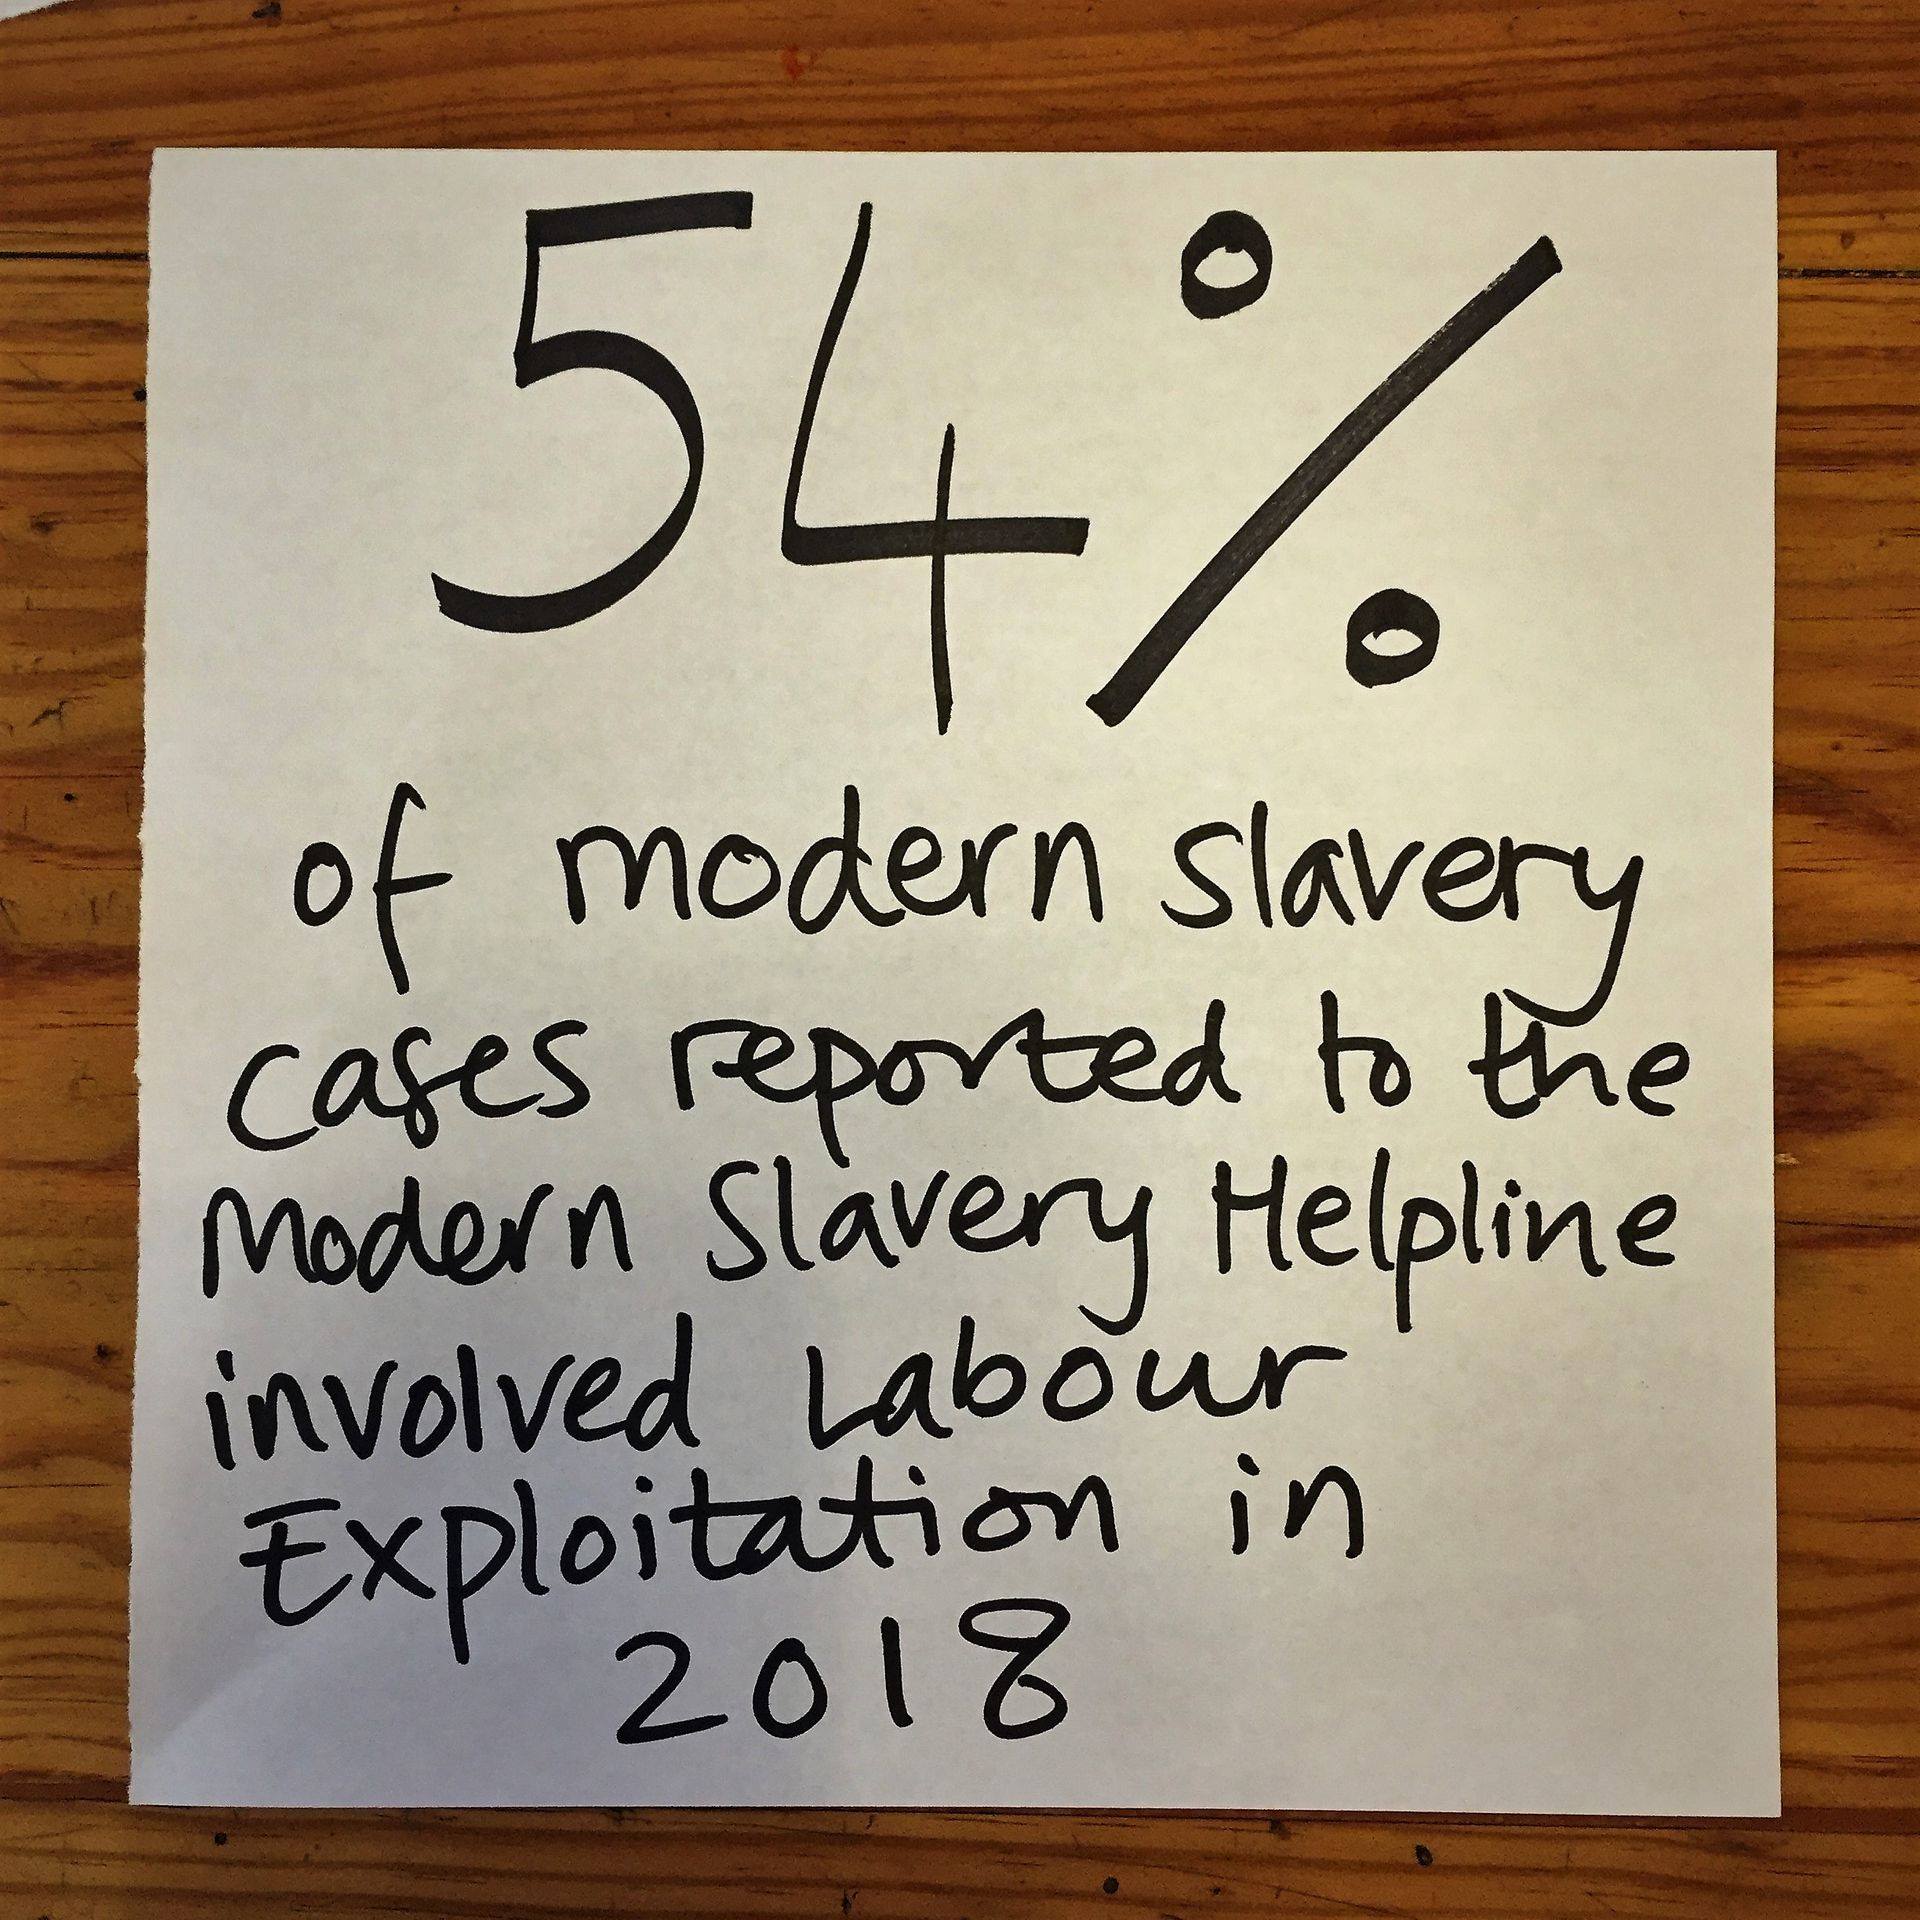 54%
of modern slavery
cases reported to the
Modern Slavery Helpline
involved Labour
Exploitation in
2018